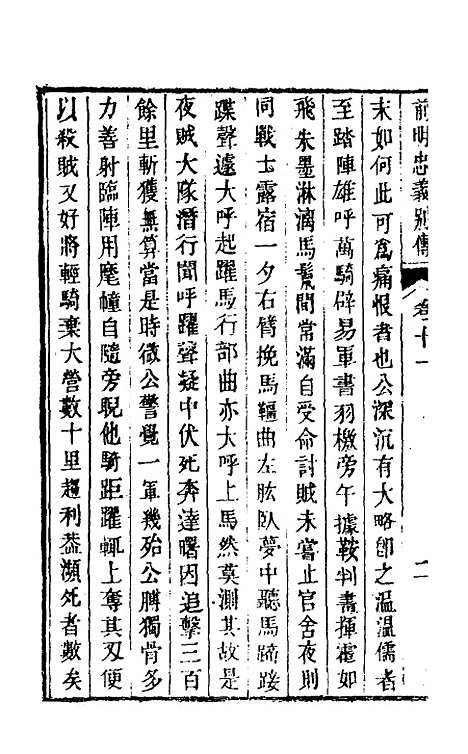 前明忠義別傳 卷二十一 二
末如何此可為痛恨者也公深沉有大略卽之温温儒者
至踏陣雄呼萬騎辟易軍書羽檄旁午據鞍判畫揮霍如
飛朱墨淋漓馬鬣間常滿自受命討賊未嘗止官舍夜則
同戰士露宿一夕右臂挽馬韁曲左肱臥夢中聽馬蹄踐
蹀聲遽大呼起躍馬行部曲亦大呼上馬然莫測其故是
夜賊大隊潛行聞呼躍聲疑中伏死奔達曙因追擊三百
餘里斬獲無算當是時微公警覺一軍幾殆公髆獨骨多
力善射臨陣用麾幢自隨旁睨他騎距躍輒上奪其刃便
以殺賊又好將輕騎棄大營數十里趨利葢瀕死者數矣